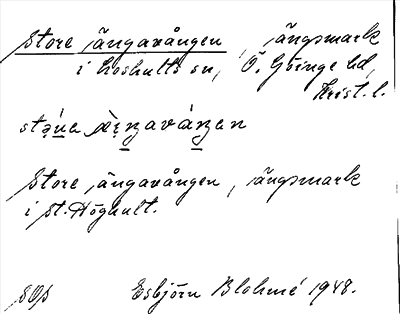 Store ängavången, ängsmark
i Loshults sn, Ö. Göinge hd,
Krist. l.
Store ängavången, ängsmark
i St. Höghult.
Esbjörn Blohmé 1948.